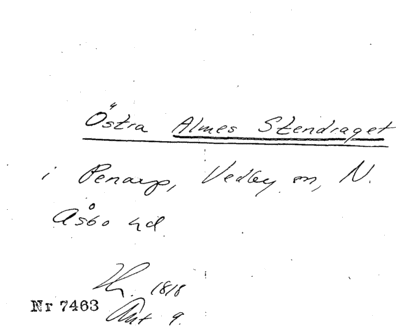 Östra Almes Stendraget
i Penarp, Vedby sn, N.
Åsbo hd.
1818
Akt 9.
Nr 7463